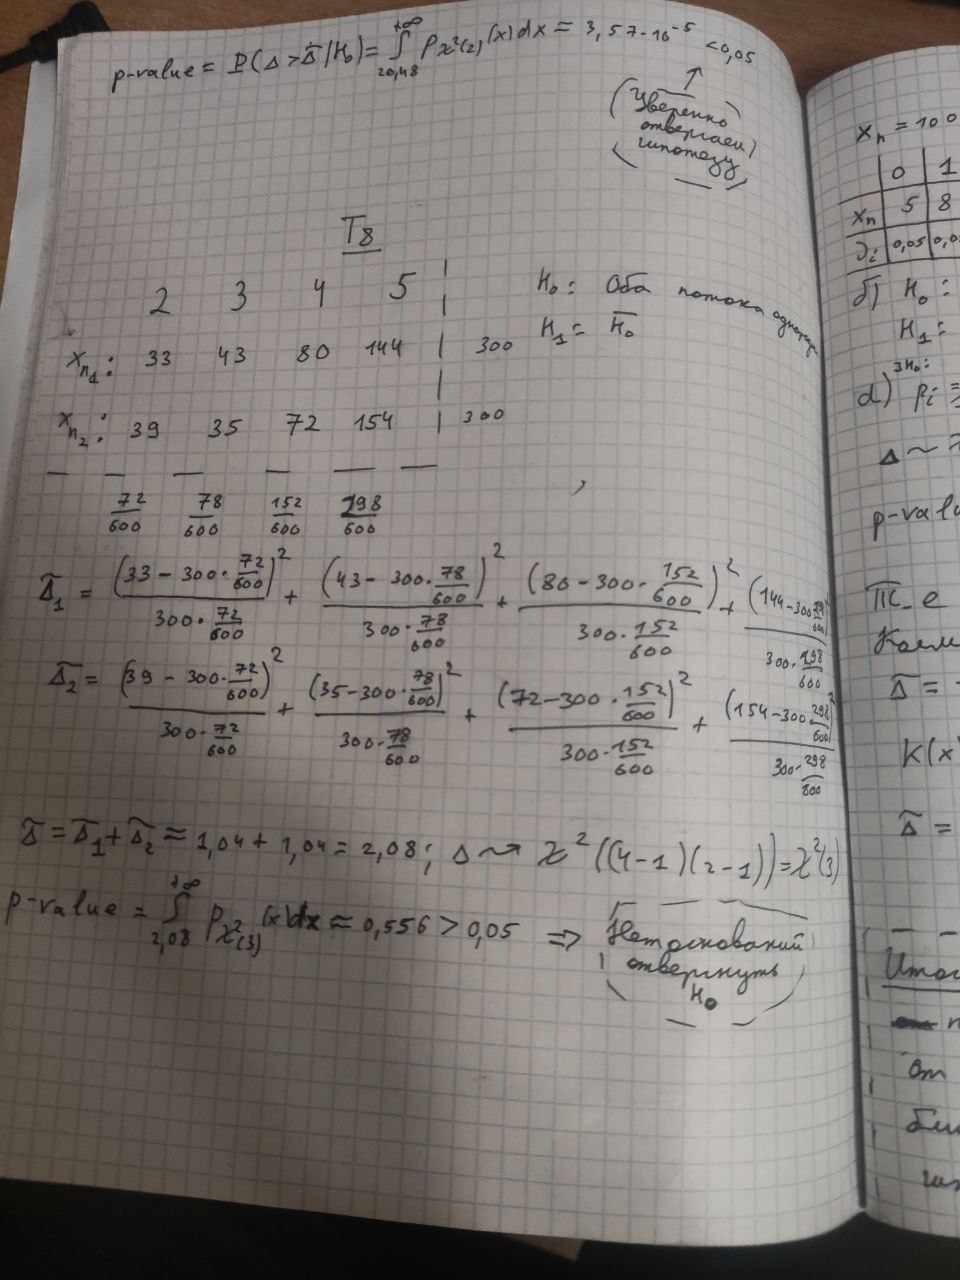 p-value = P(Δ > Δ̃ | H₀) = ∫_{20,48}^{+∞} p_{χ²(2)}(x)dx = 3,57·10⁻⁵ < 0,05
(Уверенно
отвергаем
гипотезу)
T8
2 3 4 5
H₀: Оба потока однородн
x_{n₁}: 33 43 80 144 | 300
H₁ = H̄₀
x_{n₂}: 39 35 72 154 | 300
72/600 78/600 152/600 298/600
Δ̃₁ = (33 − 300·72/600)²/(300·72/600) + (43 − 300·78/600)²/(300·78/600) + (80 − 300·152/600)²/(300·152/600) + (144 − 300·298/600)²/(300·298/600)
Δ̃₂ = (39 − 300·72/600)²/(300·72/600) + (35 − 300·78/600)²/(300·78/600) + (72 − 300·152/600)²/(300·152/600) + (154 − 300·298/600)²/(300·298/600)
Δ̃ = Δ̃₁ + Δ̃₂ ≈ 1,04 + 1,04 = 2,08; Δ ⇝ χ²((4−1)(2−1)) = χ²(3)
p-value = ∫_{2,08}^{+∞} p_{χ²(3)}(x)dx ≈ 0,556 > 0,05 ⇒ Нет оснований
отвергнуть
H₀
x_n = 100
0 1
x_n 5 8
0,05
б) H₀:
H₁ =
H₀:
d) p_i =
Δ ~
p-val
Δ̃ =
K(x
Δ̃ =
от